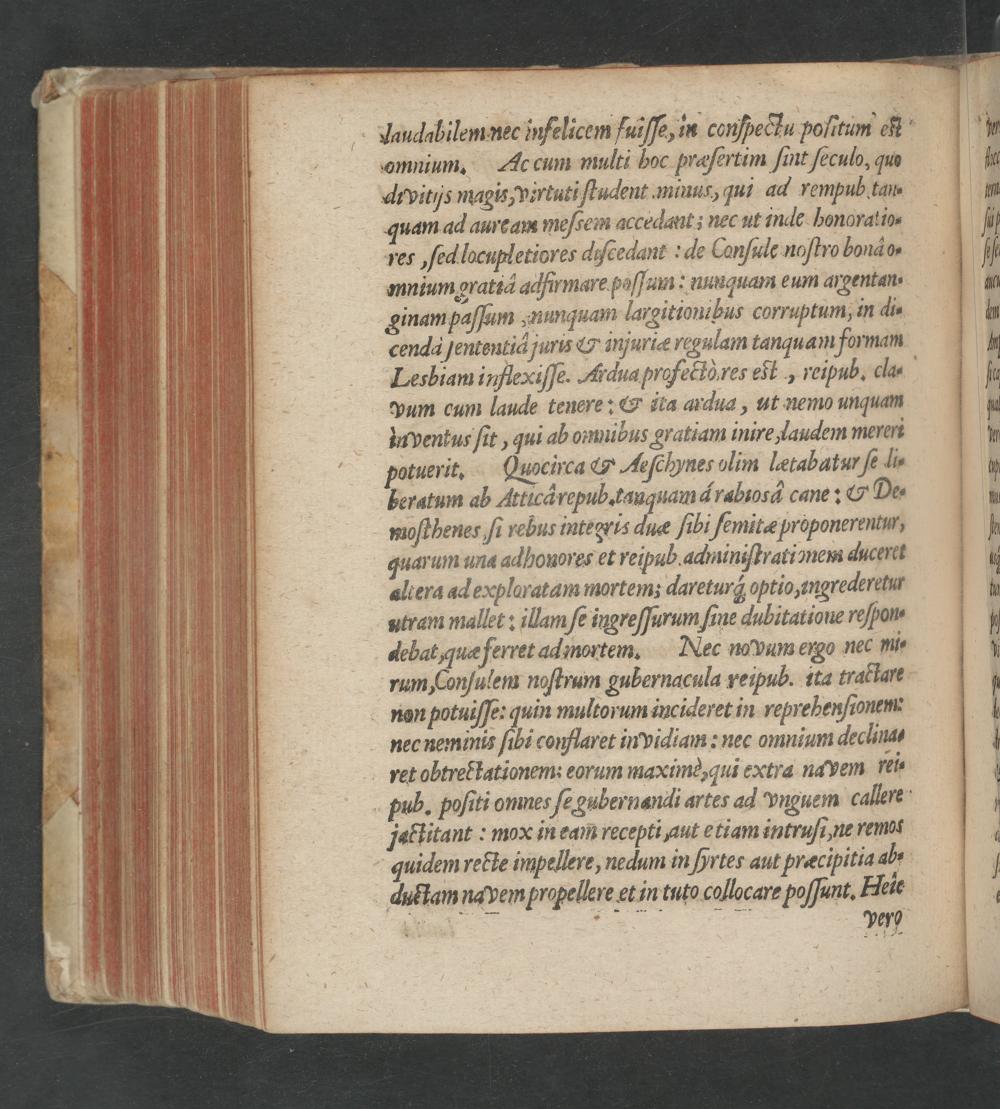 laudabilem nec infelicem fuisse, in conspectu positum est
omnium. Ac cum multi hoc præsertim sint seculo, quo
divitijs magis, virtuti student minus, qui ad rempub. tan-
quam ad auream messem accedant; nec ut inde honoratio-
res, sed locupletiores discedant : de Consule nostro bonâ o-
mnium gratiâ adfirmare possum : nunquam eum argentan-
ginam passum, nunquam largitionibus corruptum, in di-
cendâ sententiâ juris & injuriæ regulam tanquam formam
Lesbiam inflexisse. Ardua profectò res est, reipub. cla-
vum cum laude tenere : & ita ardua, ut nemo unquam
inventus sit, qui ab omnibus gratiam inire, laudem mereri
potuerit. Quocirca & Aeschynes olim lætabatur se li-
beratum ab Atticâ repub. tanquam á rabiosâ cane : & De-
mosthenes, si rebus integris duæ sibi semitæ proponerentur,
quarum una ad honores et reipub. administrationem duceret
altera ad exploratam mortem; dareturq́ optio, ingrederetur
utram mallet : illam se ingressurum sine dubitatione respon-
debat, quæ ferret ad mortem. Nec novum ergo nec mi-
rum, Consulem nostrum gubernacula reipub. ita tractare
non potuisse: quin multorum incideret in reprehensionem:
nec neminis sibi conflaret invidiam : nec omnium declina-
ret obtrectationem: eorum maximè, qui extra navem rei-
pub. positi omnes se gubernandi artes ad vnguem callere
jactitant : mox in eam recepti, aut etiam intrusi, ne remos
quidem recte impellere, nedum in syrtes aut præcipitia ab-
ductam navem propellere et in tuto collocare possunt. Heic
vero